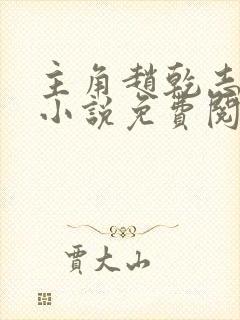 主角趙乾志
小說免費閱
賈大山